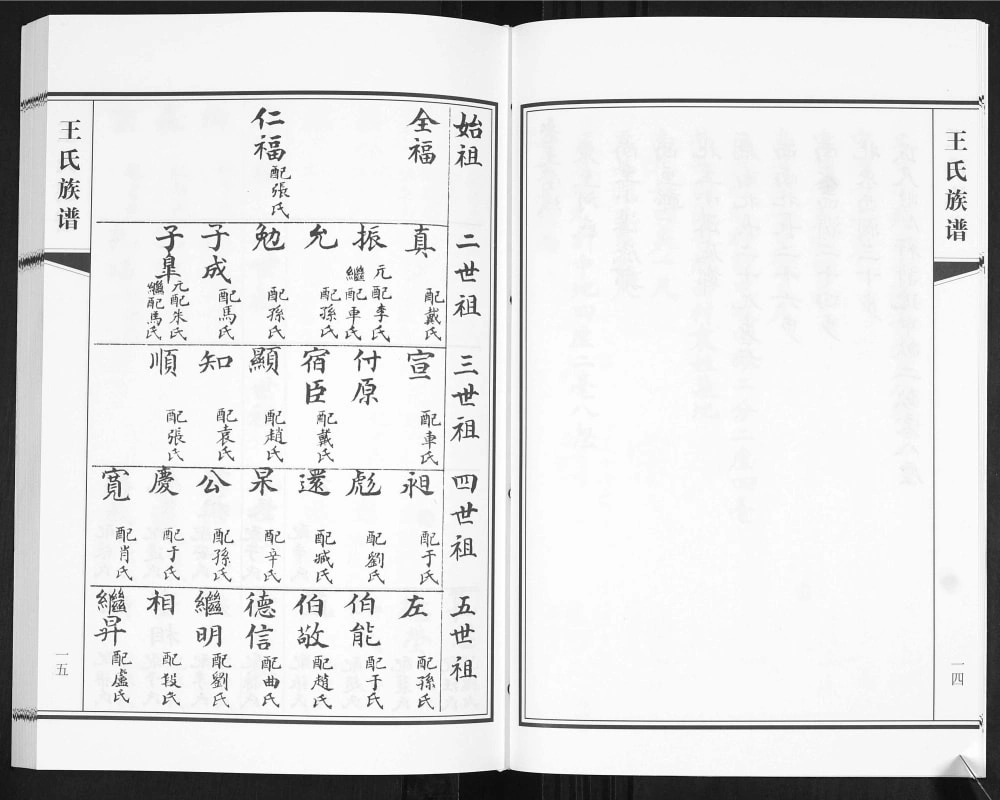 王氏族谱
一四
始祖
全福
仁福 配張氏
二世祖
真 配戴氏
振 元配李氏 繼配車氏
允 配孫氏
勉 配孫氏
子成 配馬氏
子皐 元配朱氏 繼配馬氏
三世祖
宣 配車氏
付原
宿臣 配戴氏
顯 配趙氏
知 配袁氏
順 配張氏
四世祖
祖 配于氏
彪 配劉氏
還 配臧氏
杲 配辛氏
公 配孫氏
慶 配于氏
寬 配肖氏
五世祖
左 配孫氏
伯能 配于氏
伯敬 配趙氏
德信 配曲氏
繼明 配劉氏
相 配段氏
繼昇 配盧氏
王氏族谱
一五